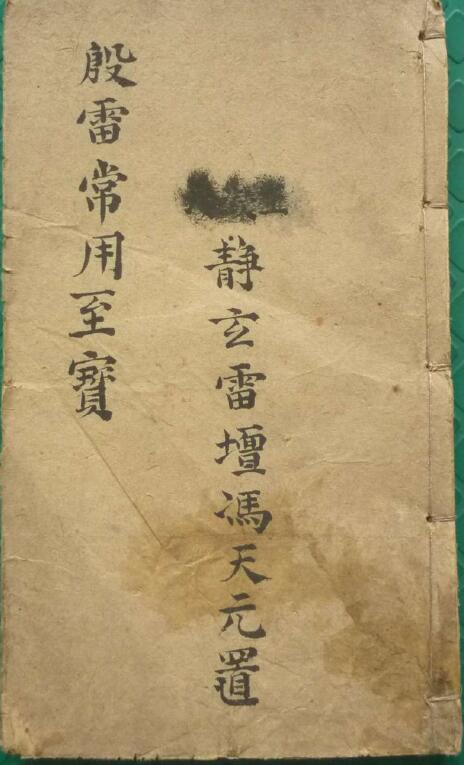 静玄雷壇馮天元置
殷雷常用至寶